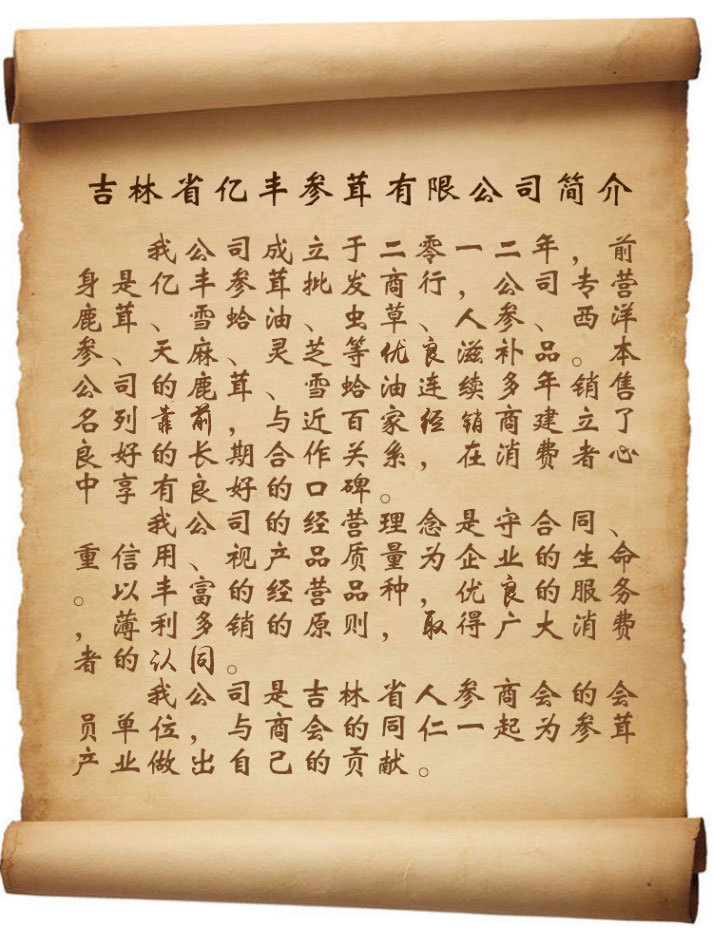 吉林省亿丰参茸有限公司简介
我公司成立于二零一二年，前
身是亿丰参茸批发商行，公司专营
鹿茸、雪蛤油、虫草、人参、西洋
参、天麻、灵芝等优良滋补品。本
公司的鹿茸、雪蛤油连续多年销售
名列靠前，与近百家经销商建立了
良好的长期合作关系，在消费者心
中享有良好的口碑。
我公司的经营理念是守合同、
重信用、视产品质量为企业的生命
。以丰富的经营品种，优良的服务
，薄利多销的原则，取得广大消费
者的认同。
我公司是吉林省人参商会的会
员单位，与商会的同仁一起为参茸
产业做出自己的贡献。